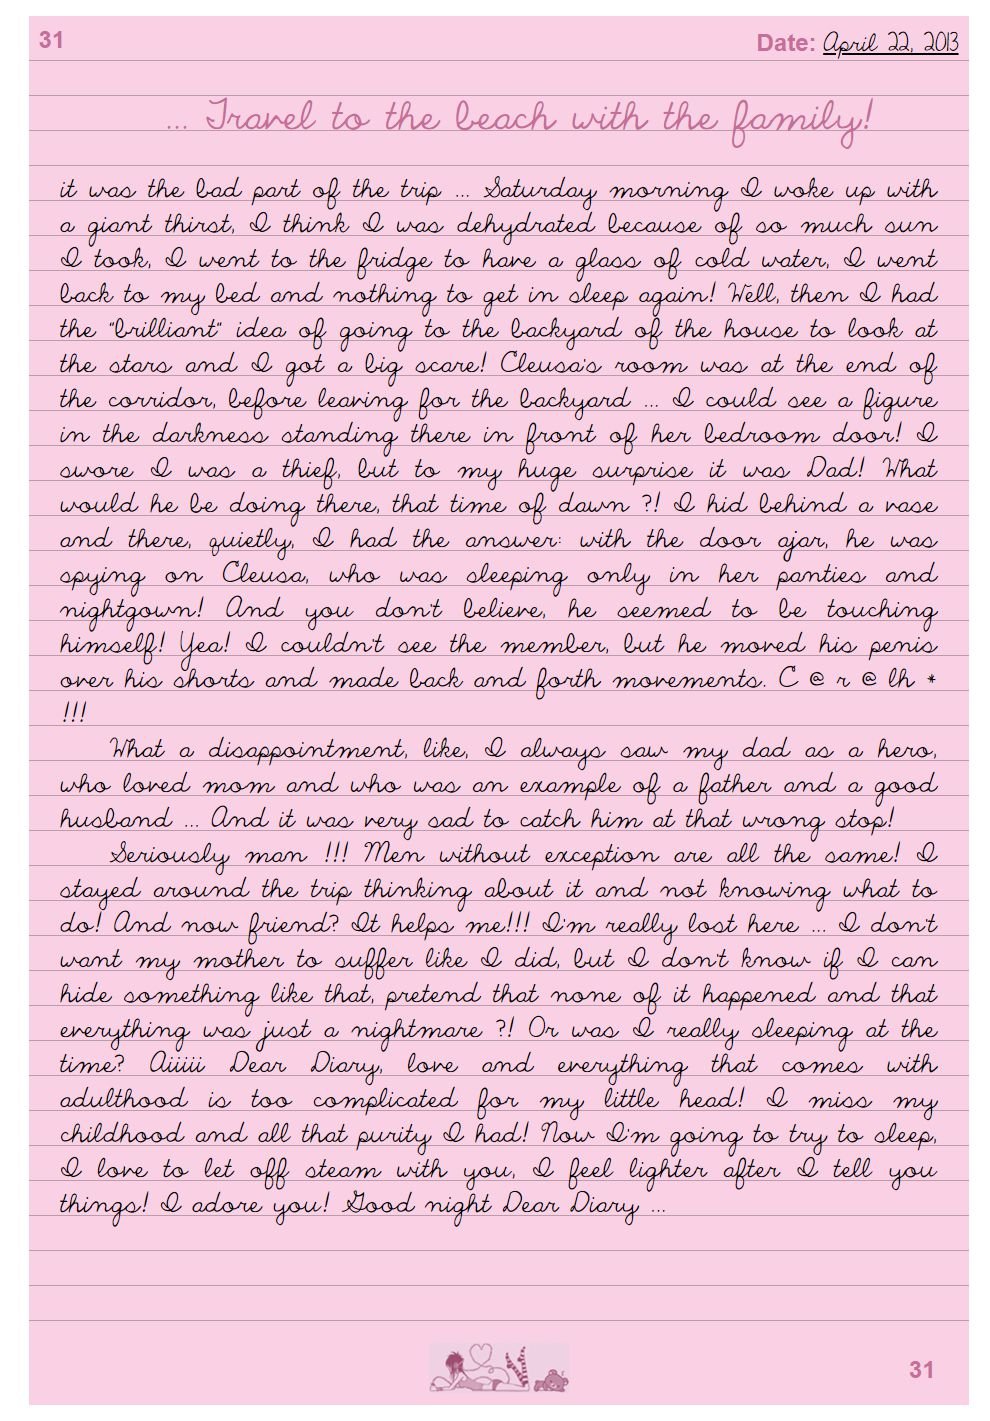 31
Date: April 22, 2013
... Travel to the beach with the family!
it was the bad part of the trip ... Saturday morning I woke up with
a giant thirst, I think I was dehydrated because of so much sun
I took, I went to the fridge to have a glass of cold water, I went
back to my bed and nothing to get in sleep again! Well, then I had
the "brilliant" idea of going to the backyard of the house to look at
the stars and I got a big scare! Cleusa's room was at the end of
the corridor, before leaving for the backyard ... I could see a figure
in the darkness standing there in front of her bedroom door! I
swore I was a thief, but to my huge surprise it was Dad! What
would he be doing there, that time of dawn ?! I hid behind a vase
and there, quietly, I had the answer: with the door ajar, he was
spying on Cleusa, who was sleeping only in her panties and
nightgown! And you don't believe, he seemed to be touching
himself! Yea! I couldn't see the member, but he moved his penis
over his shorts and made back and forth movements. C @ r @ lh *
!!!
What a disappointment, like, I always saw my dad as a hero,
who loved mom and who was an example of a father and a good
husband ... And it was very sad to catch him at that wrong stop!
Seriously man !!! Men without exception are all the same! I
stayed around the trip thinking about it and not knowing what to
do! And now friend? It helps me!!! I'm really lost here ... I don't
want my mother to suffer like I did, but I don't know if I can
hide something like that, pretend that none of it happened and that
everything was just a nightmare ?! Or was I really sleeping at the
time? Aiiiii Dear Diary, love and everything that comes with
adulthood is too complicated for my little head! I miss my
childhood and all that purity I had! Now I'm going to try to sleep,
I love to let off steam with you, I feel lighter after I tell you
things! I adore you! Good night Dear Diary ...
31